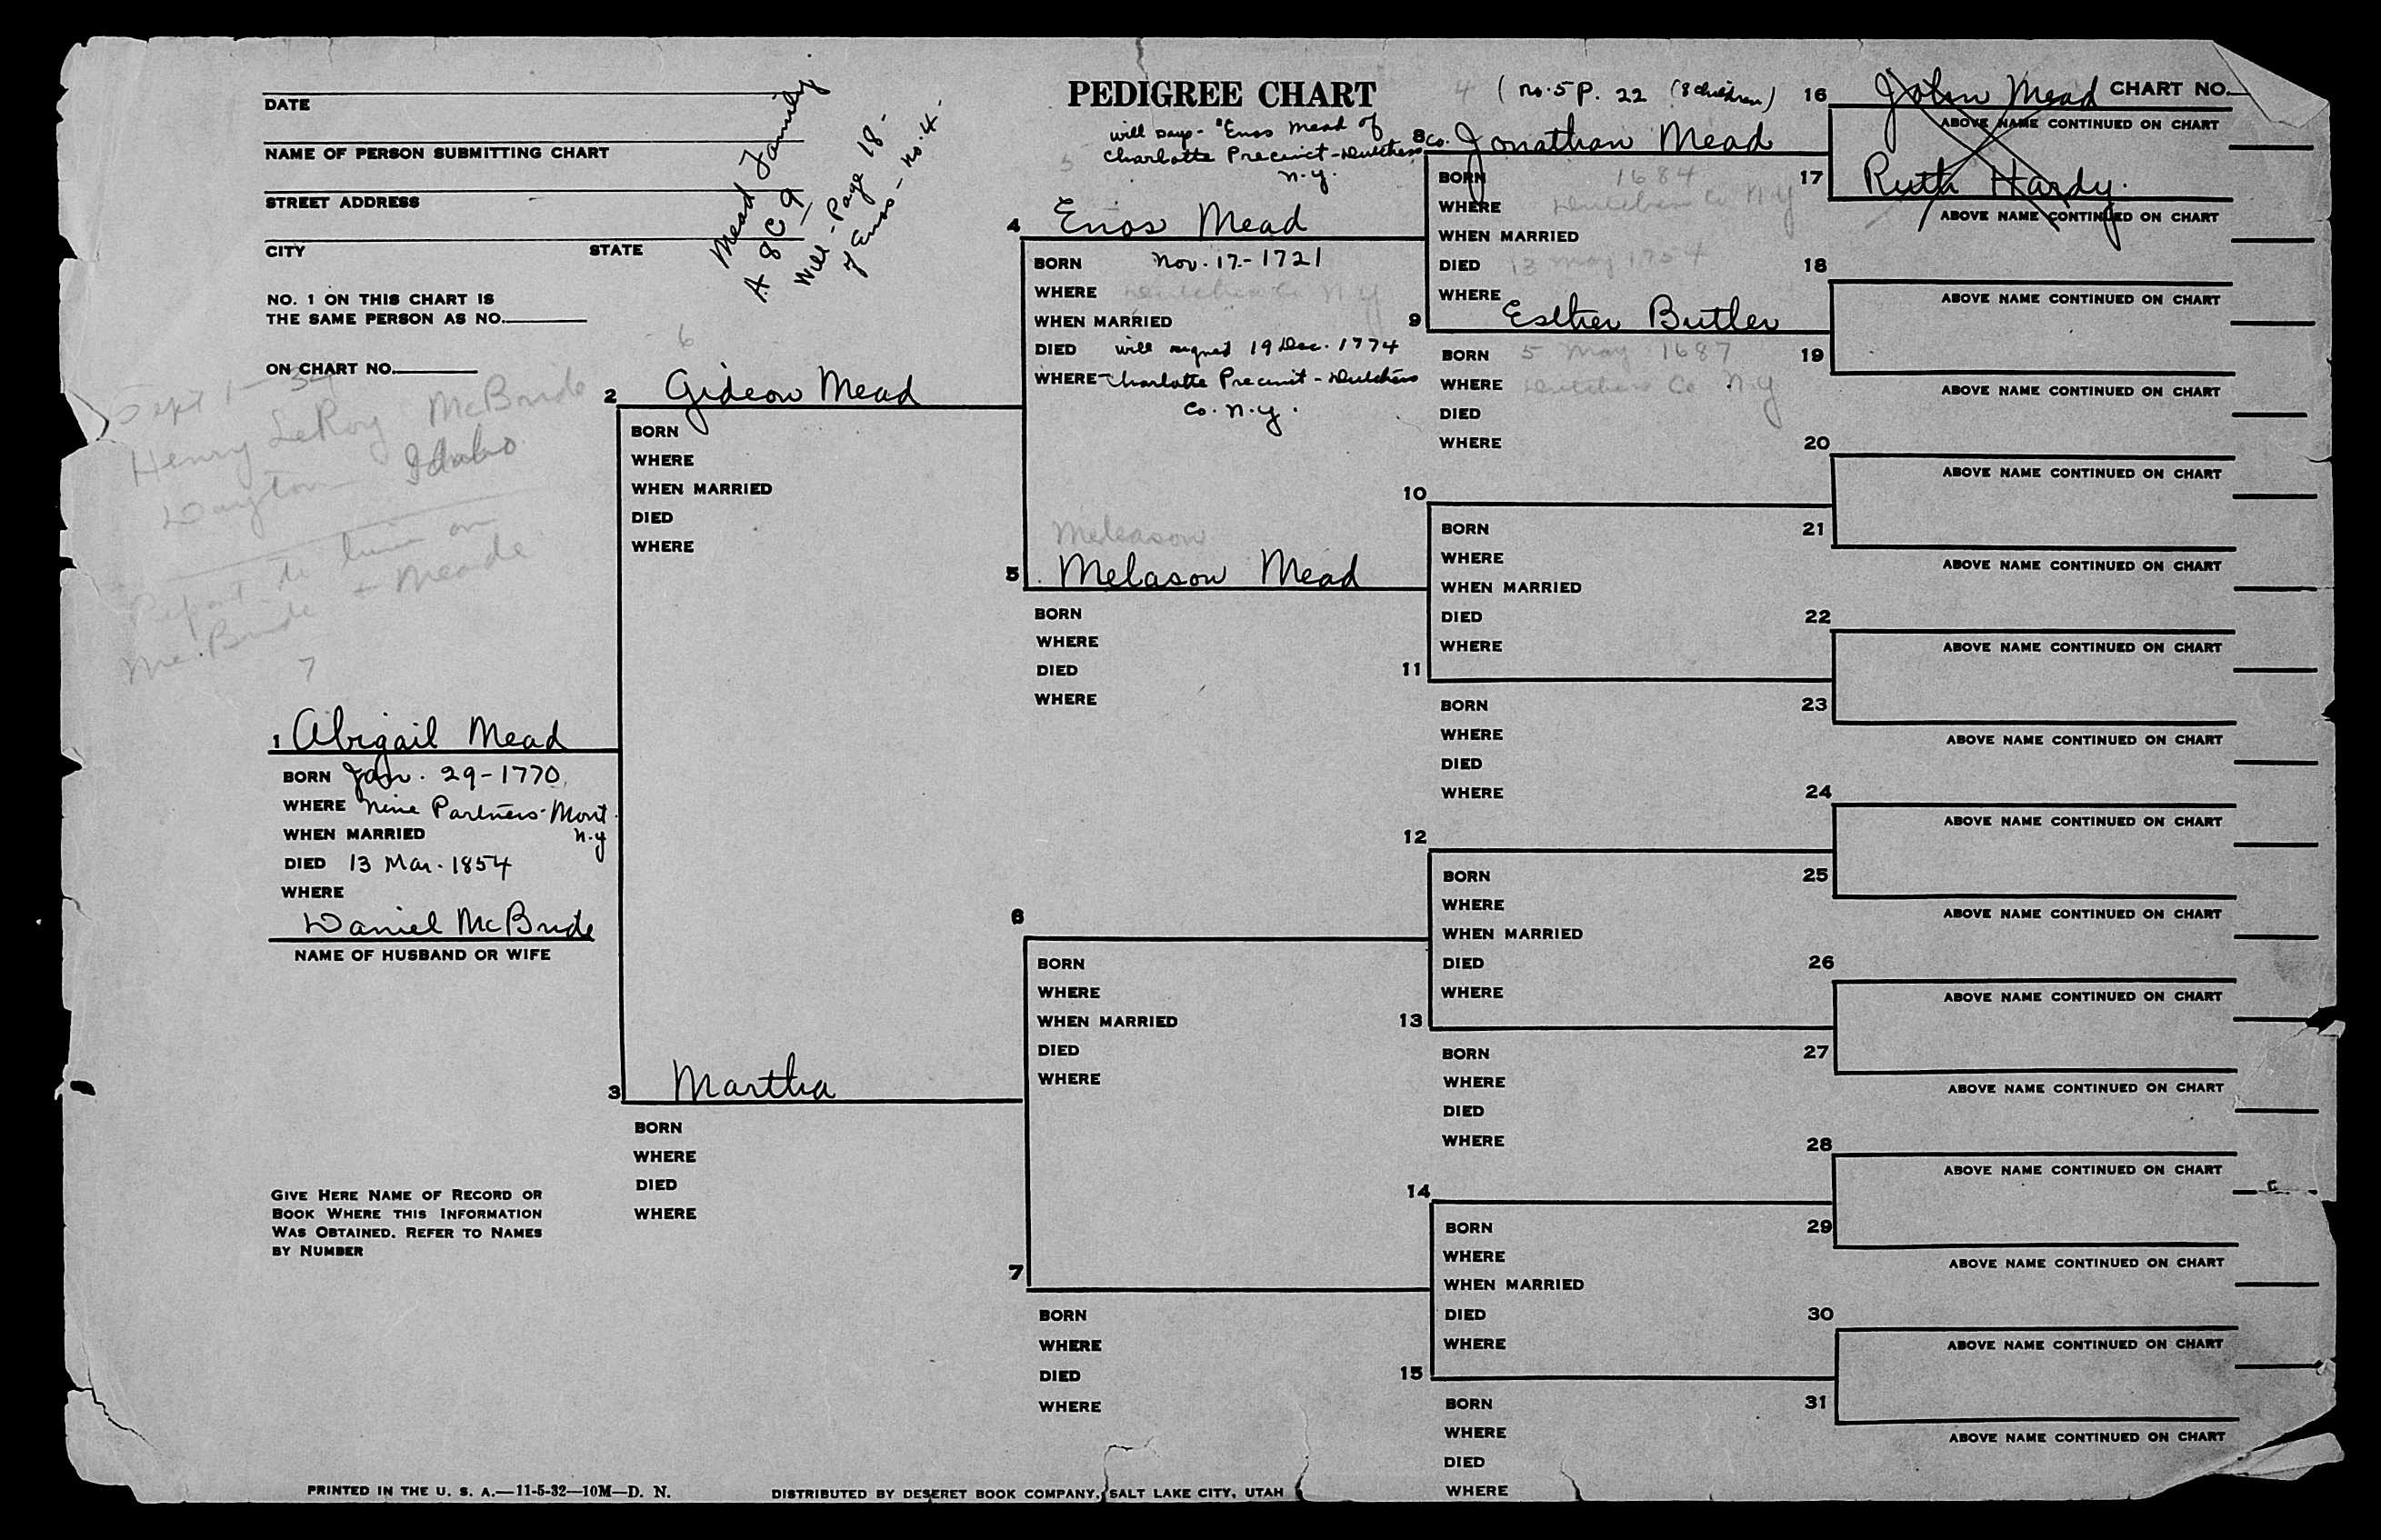 DATE
NAME OF PERSON SUBMITTING CHART
STREET ADDRESS
CITY STATE
NO. 1 ON THIS CHART IS
THE SAME PERSON AS NO.
ON CHART NO.
Sept 1 - 34
Henry LeRoy McBride
Dayton Idaho
Report to him on
McBride + Meade
7
Mead Family
A 8 C 9
Will - Page 18 -
of Enos - no. 4 -
PEDIGREE CHART
will says - "Enos Mead of
Charlotte Precinct - Dutchess Co.
N.Y.
4 ( no. 5 P. 22 (8 children)
CHART NO.
1 Abigail Mead
BORN Jan. 29 - 1770
WHERE Nine Partners - Mont.
N.Y
WHEN MARRIED
DIED 13 Mar. 1854
WHERE
Daniel McBride
NAME OF HUSBAND OR WIFE
GIVE HERE NAME OF RECORD OR
BOOK WHERE THIS INFORMATION
WAS OBTAINED. REFER TO NAMES
BY NUMBER
6
2 Gideon Mead
BORN
WHERE
WHEN MARRIED
DIED
WHERE
3 Martha
BORN
WHERE
DIED
WHERE
5
4 Enos Mead
BORN Nov. 17 - 1721
WHERE Dutchess Co N Y
WHEN MARRIED
DIED will signed 19 Dec. 1774
WHERE - Charlotte Precinct - Dutchess
Co. N.Y.
Meleason
5 Melason Mead
BORN
WHERE
DIED
WHERE
6
BORN
WHERE
WHEN MARRIED
DIED
WHERE
7
BORN
WHERE
DIED
WHERE
8 Jonathan Mead
BORN 1684
WHERE Dutchess Co N Y
WHEN MARRIED
DIED 13 May 1754
WHERE
9 Esther Butler
BORN 5 May 1687
WHERE Dutchess Co N Y
DIED
WHERE
10
BORN
WHERE
WHEN MARRIED
DIED
WHERE
11
BORN
WHERE
DIED
WHERE
12
BORN
WHERE
WHEN MARRIED
DIED
WHERE
13
BORN
WHERE
DIED
WHERE
14
BORN
WHERE
WHEN MARRIED
DIED
WHERE
15
BORN
WHERE
DIED
WHERE
16 John Mead
ABOVE NAME CONTINUED ON CHART
17 Ruth Hardy.
ABOVE NAME CONTINUED ON CHART
18
ABOVE NAME CONTINUED ON CHART
19
ABOVE NAME CONTINUED ON CHART
20
ABOVE NAME CONTINUED ON CHART
21
ABOVE NAME CONTINUED ON CHART
22
ABOVE NAME CONTINUED ON CHART
23
ABOVE NAME CONTINUED ON CHART
24
ABOVE NAME CONTINUED ON CHART
25
ABOVE NAME CONTINUED ON CHART
26
ABOVE NAME CONTINUED ON CHART
27
ABOVE NAME CONTINUED ON CHART
28
ABOVE NAME CONTINUED ON CHART
29
ABOVE NAME CONTINUED ON CHART
30
ABOVE NAME CONTINUED ON CHART
31
ABOVE NAME CONTINUED ON CHART
PRINTED IN THE U. S. A.—11-5-32—10M—D. N.
DISTRIBUTED BY DESERET BOOK COMPANY, SALT LAKE CITY, UTAH